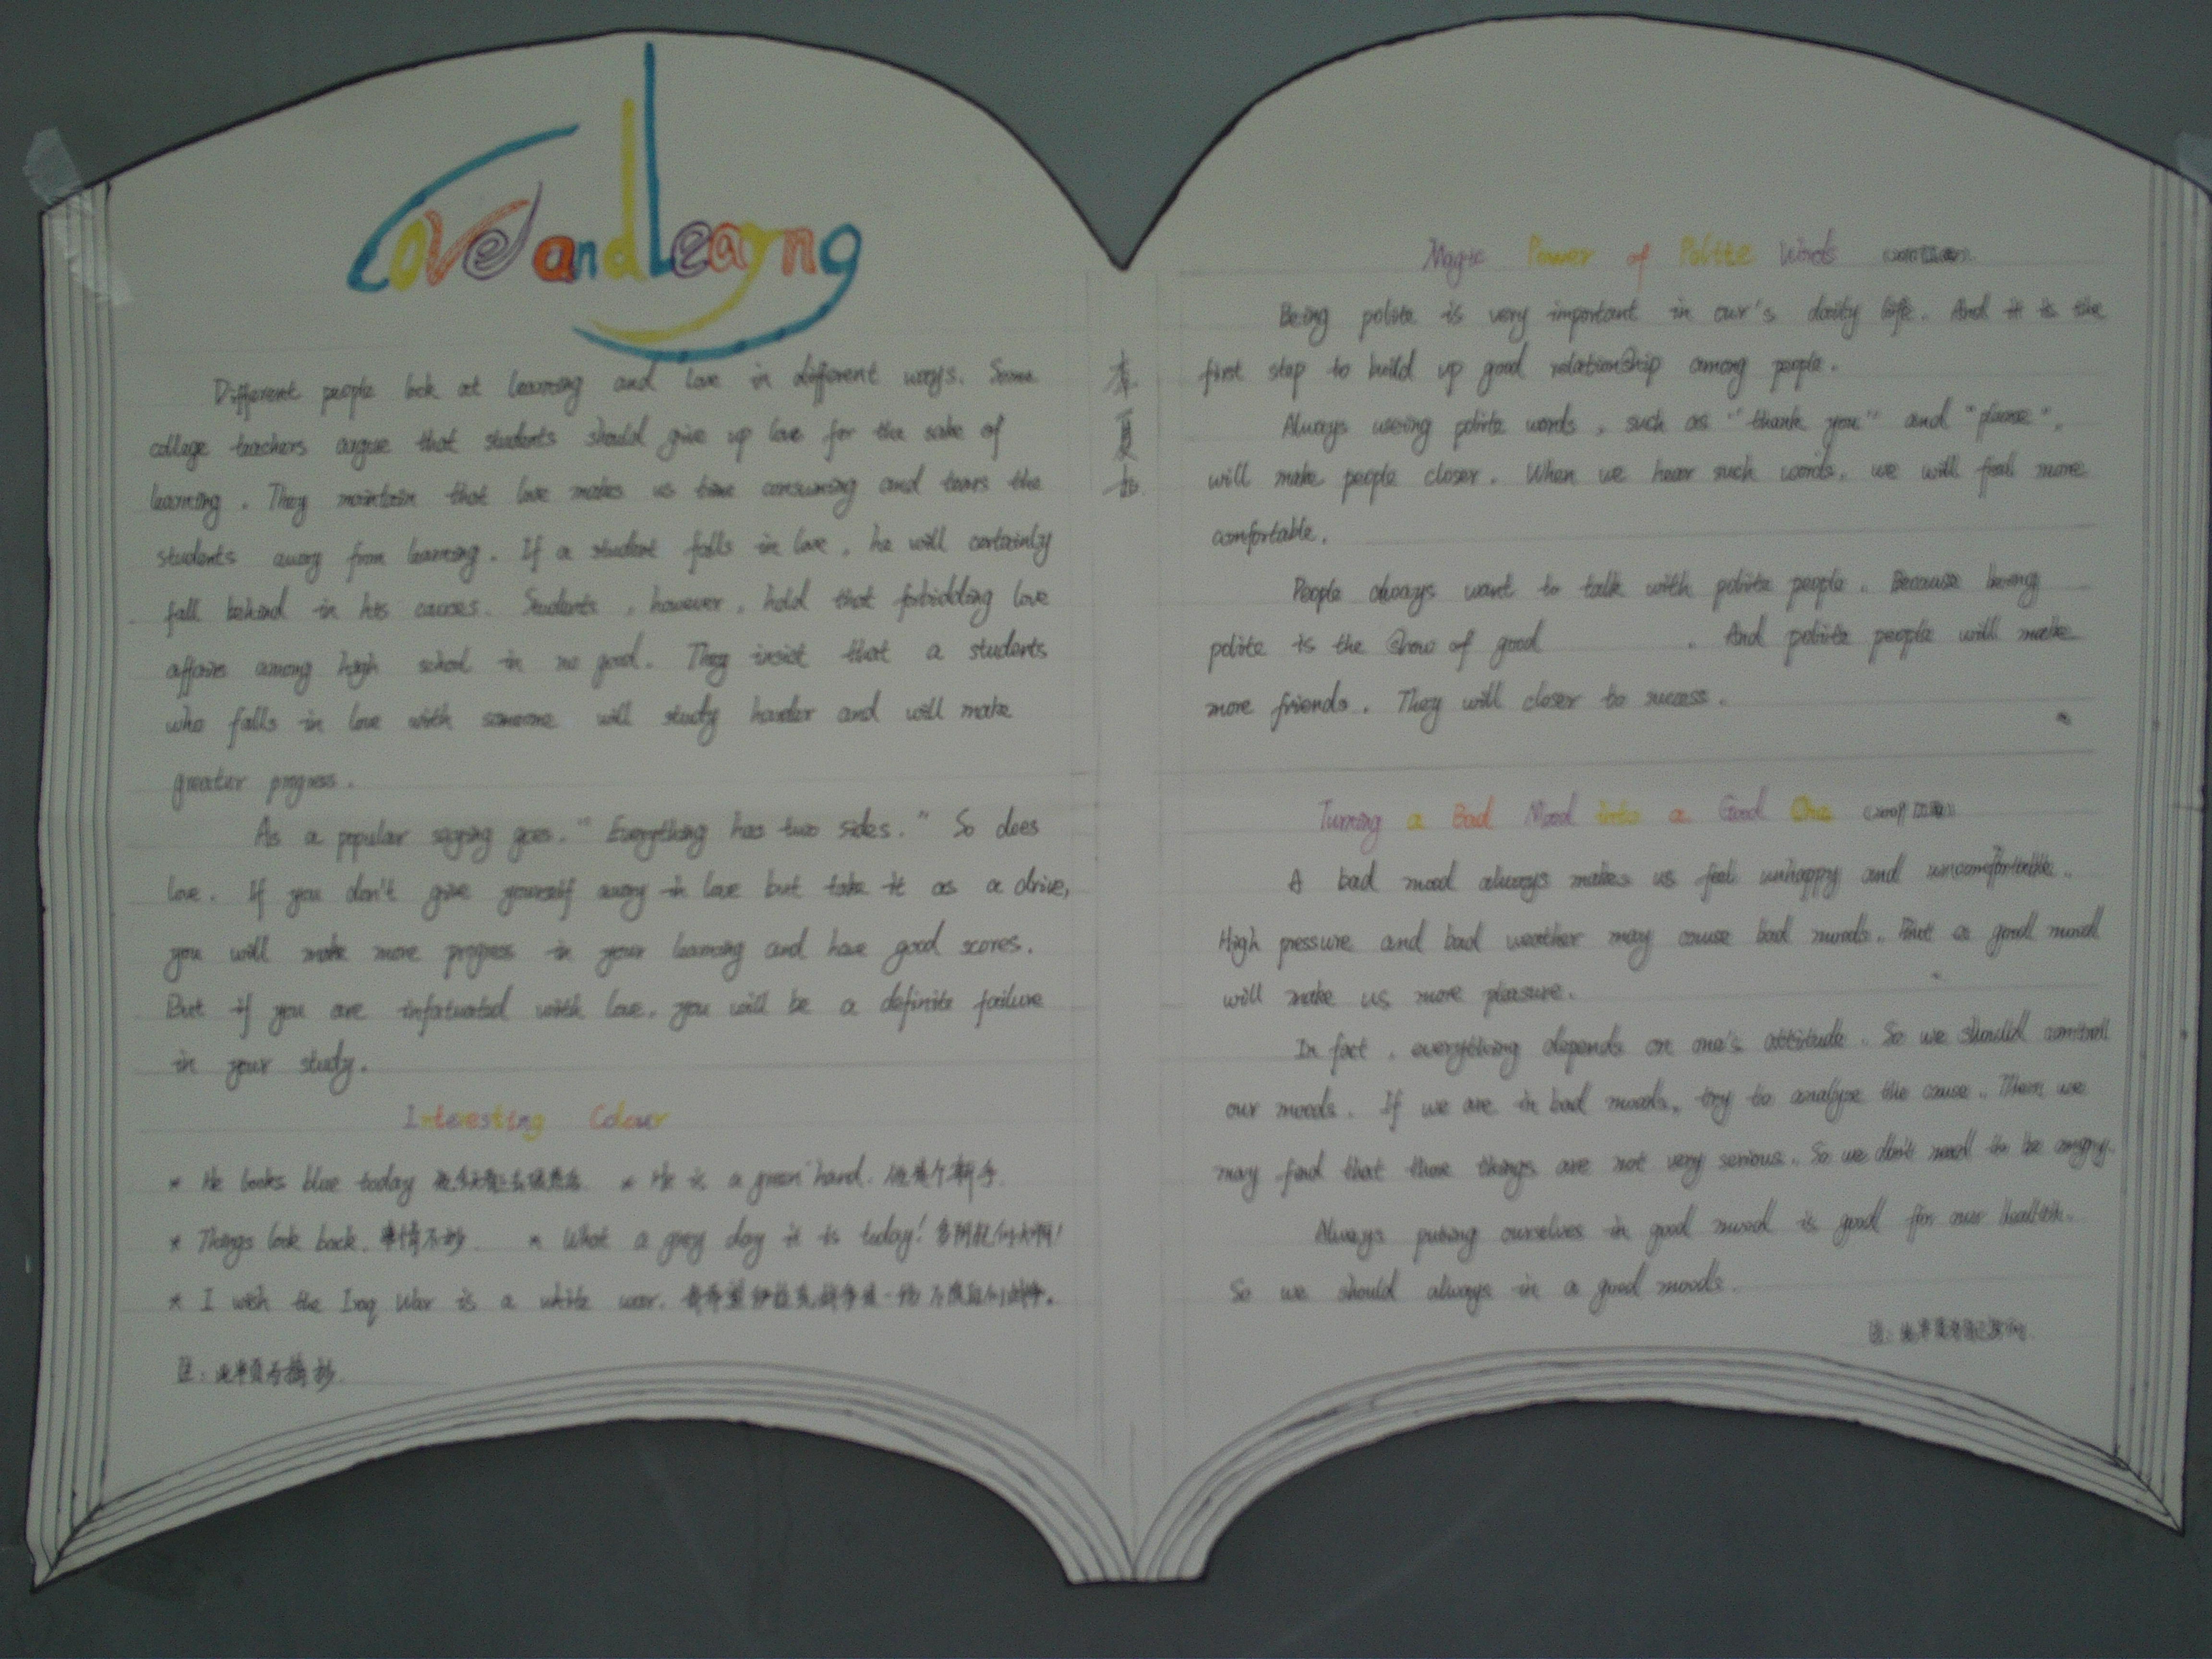 Love and Learnng
Different people look at learning and love in different ways. Some
college teachers argue that students should give up love for the sake of
learning. They maintain that love makes us time consuming and tears the
students away from learning. If a student falls in love, he will certainly
fall behind in his causes. Students, however, hold that forbidding love
affairs among high school in no good. They insist that a students
who falls in love with someone will study harder and will make
greater progress.
As a popular saying goes. "Everything has two sides." So does
love. If you don't give yourself away in love but take it as a drive,
you will make more progress in your learning and have good scores.
But if you are infatuated with love, you will be a definite failure
in your study.
Interesting Colour
* He looks blue today * He is a green hand. 他是个新手.
* Things look back. 事情不妙. * What a grey day it is today!
* I wish the Iraq War is a white war.
注: 此半页为摘抄.
李
夏
Magic Power of Polite Words
Being polite is very important in our's daily life. And it is the
first step to build up good relationship among people.
Always useing polite words, such as "thank you" and "please",
will make people closer. When we hear such words, we will feel more
comfortable.
People always want to talk with polite people. Because being
polite is the show of good . And polite people will make
more friends. They will closer to success.
Turning a Bad Mood into a Good One
A bad mood always makes us feel unhappy and uncomfortable.
High pressure and bad weather may cause bad moods. But a good mood
will make us more pleasure.
In fact, everything depends on one's attitude. So we should controll
our moods. If we are in bad moods, try to analyse the cause. Then we
may find that those things are not very serious. So we don't need to be angry.
Always puting ourselves in good mood is good for our health.
So we should always in a good moods.